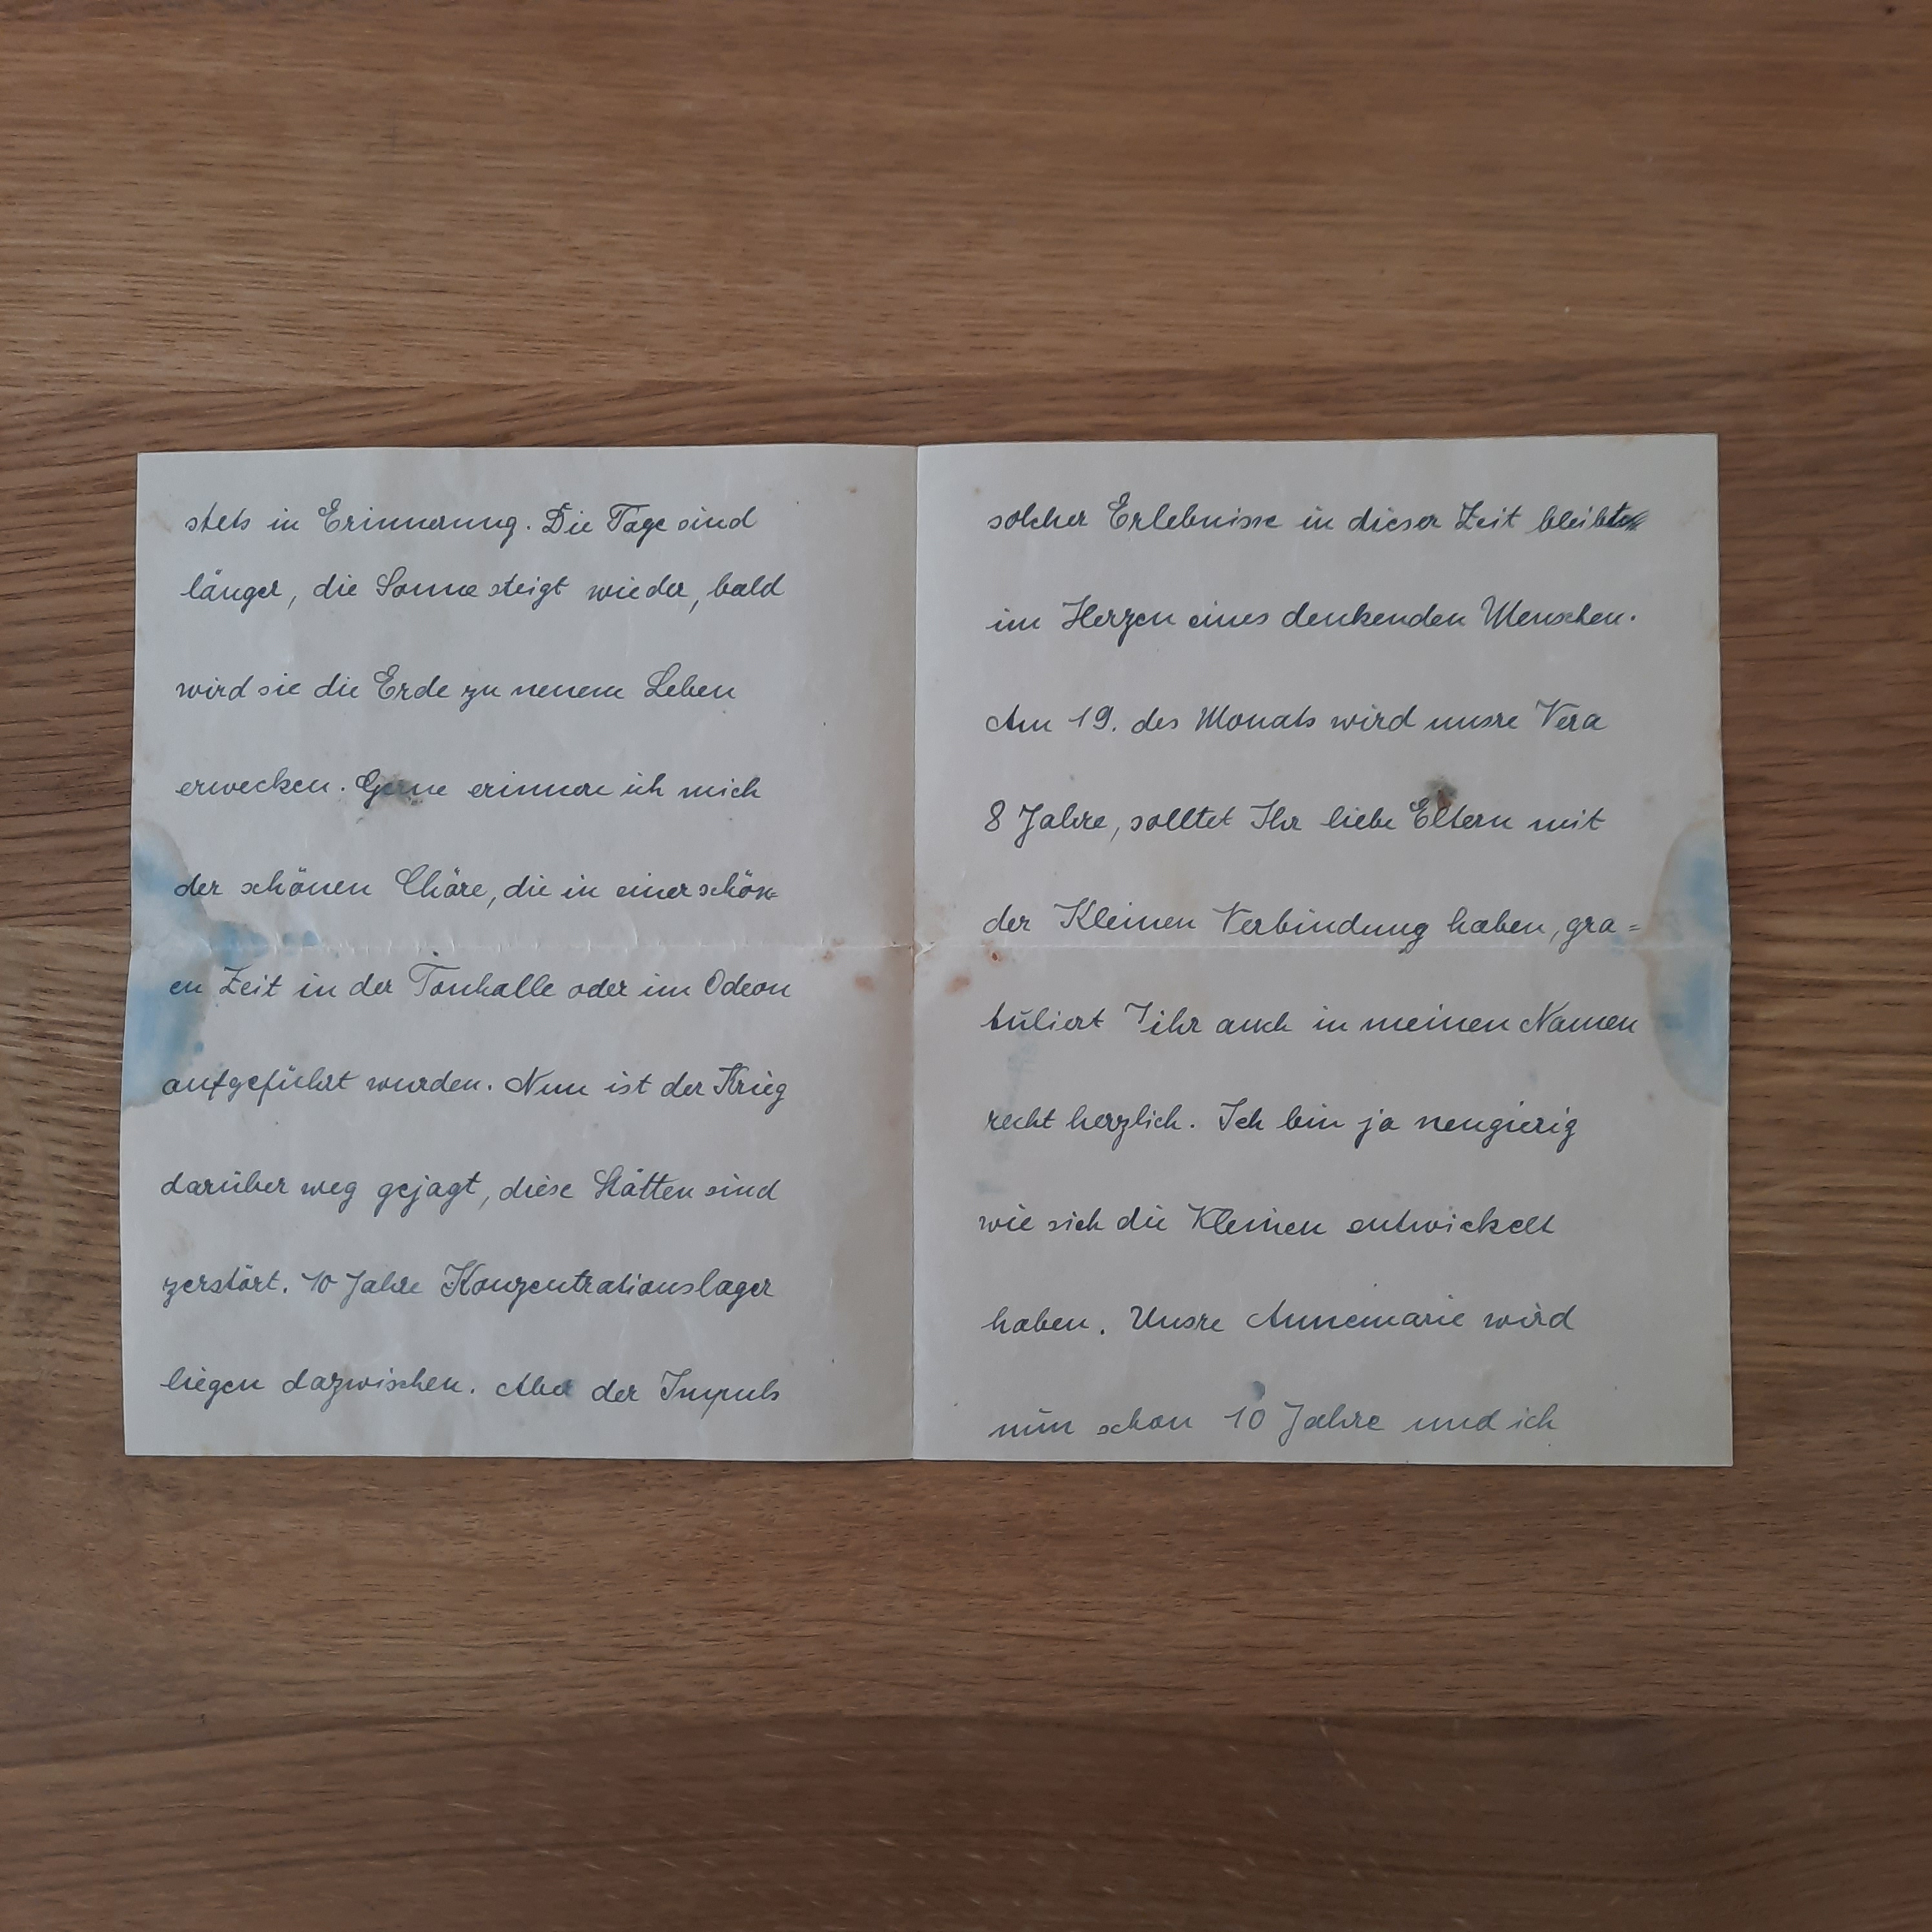 stets in Erinnerung. Die Tage sind
länger, die Sonne steigt wieder, bald
wird sie die Erde zu neuem Leben
erwecken. Gerne erinnere ich mich
der schönen Chöre, die in einer schön=
en Zeit in der Tonhalle oder im Odeon
aufgeführt wurden. Nun ist der Krieg
darüber weg gejagt, diese Stätten sind
zerstört. 10 Jahre Konzentrationslager
liegen dazwischen. Aber der Impuls
solcher Erlebnisse in dieser Zeit bleibt
im Herzen eines denkenden Menschen.
Am 19. des Monats wird unsre Vera
8 Jahre, solltet Ihr liebe Eltern mit
der Kleinen Verbindung haben, gra=
tuliert ihr auch in meinen Namen
recht herzlich. Ich bin ja neugierig
wie sich die Kleinen entwickelt
haben. Unsre Annemarie wird
nun schon 10 Jahre und ich